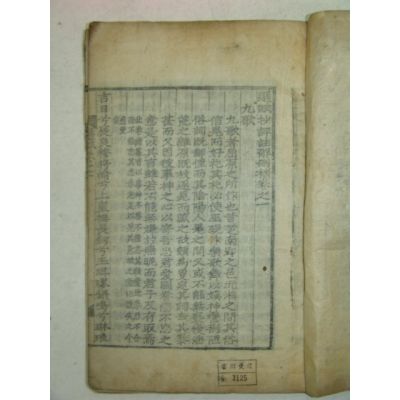 選賦抄評註解刪補卷之一
九歌
九歌者屈原之所作也昔楚南郢之邑沅湘之間其俗
信鬼而好祀其祀必使巫覡作樂歌舞以娛神蠻荊陋
俗詞旣鄙俚而其陰陽人鬼之間又或不能無褻慢淫
荒之雜原旣放逐見而感之故頗爲更定其詞去其泰
甚而又因彼事神之心以寄吾忠君愛國眷戀不忘之
意是以其言雖若不能無嫌於燕昵而君子反有取焉
吉日兮辰良穆將愉兮上皇撫長劍兮玉珥璆鏘鳴兮琳琅
3125